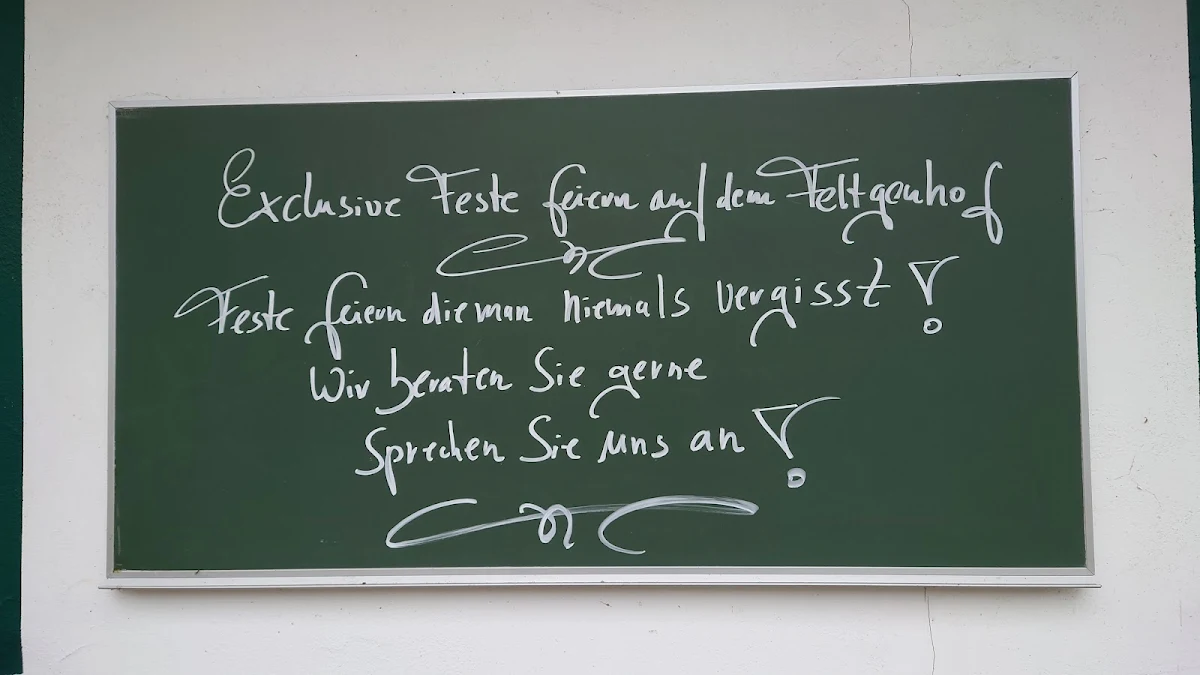 Exclusive Feste feiern auf dem Feltgenhof
Feste feiern die man niemals vergisst!
Wir beraten Sie gerne
Sprechen Sie uns an!